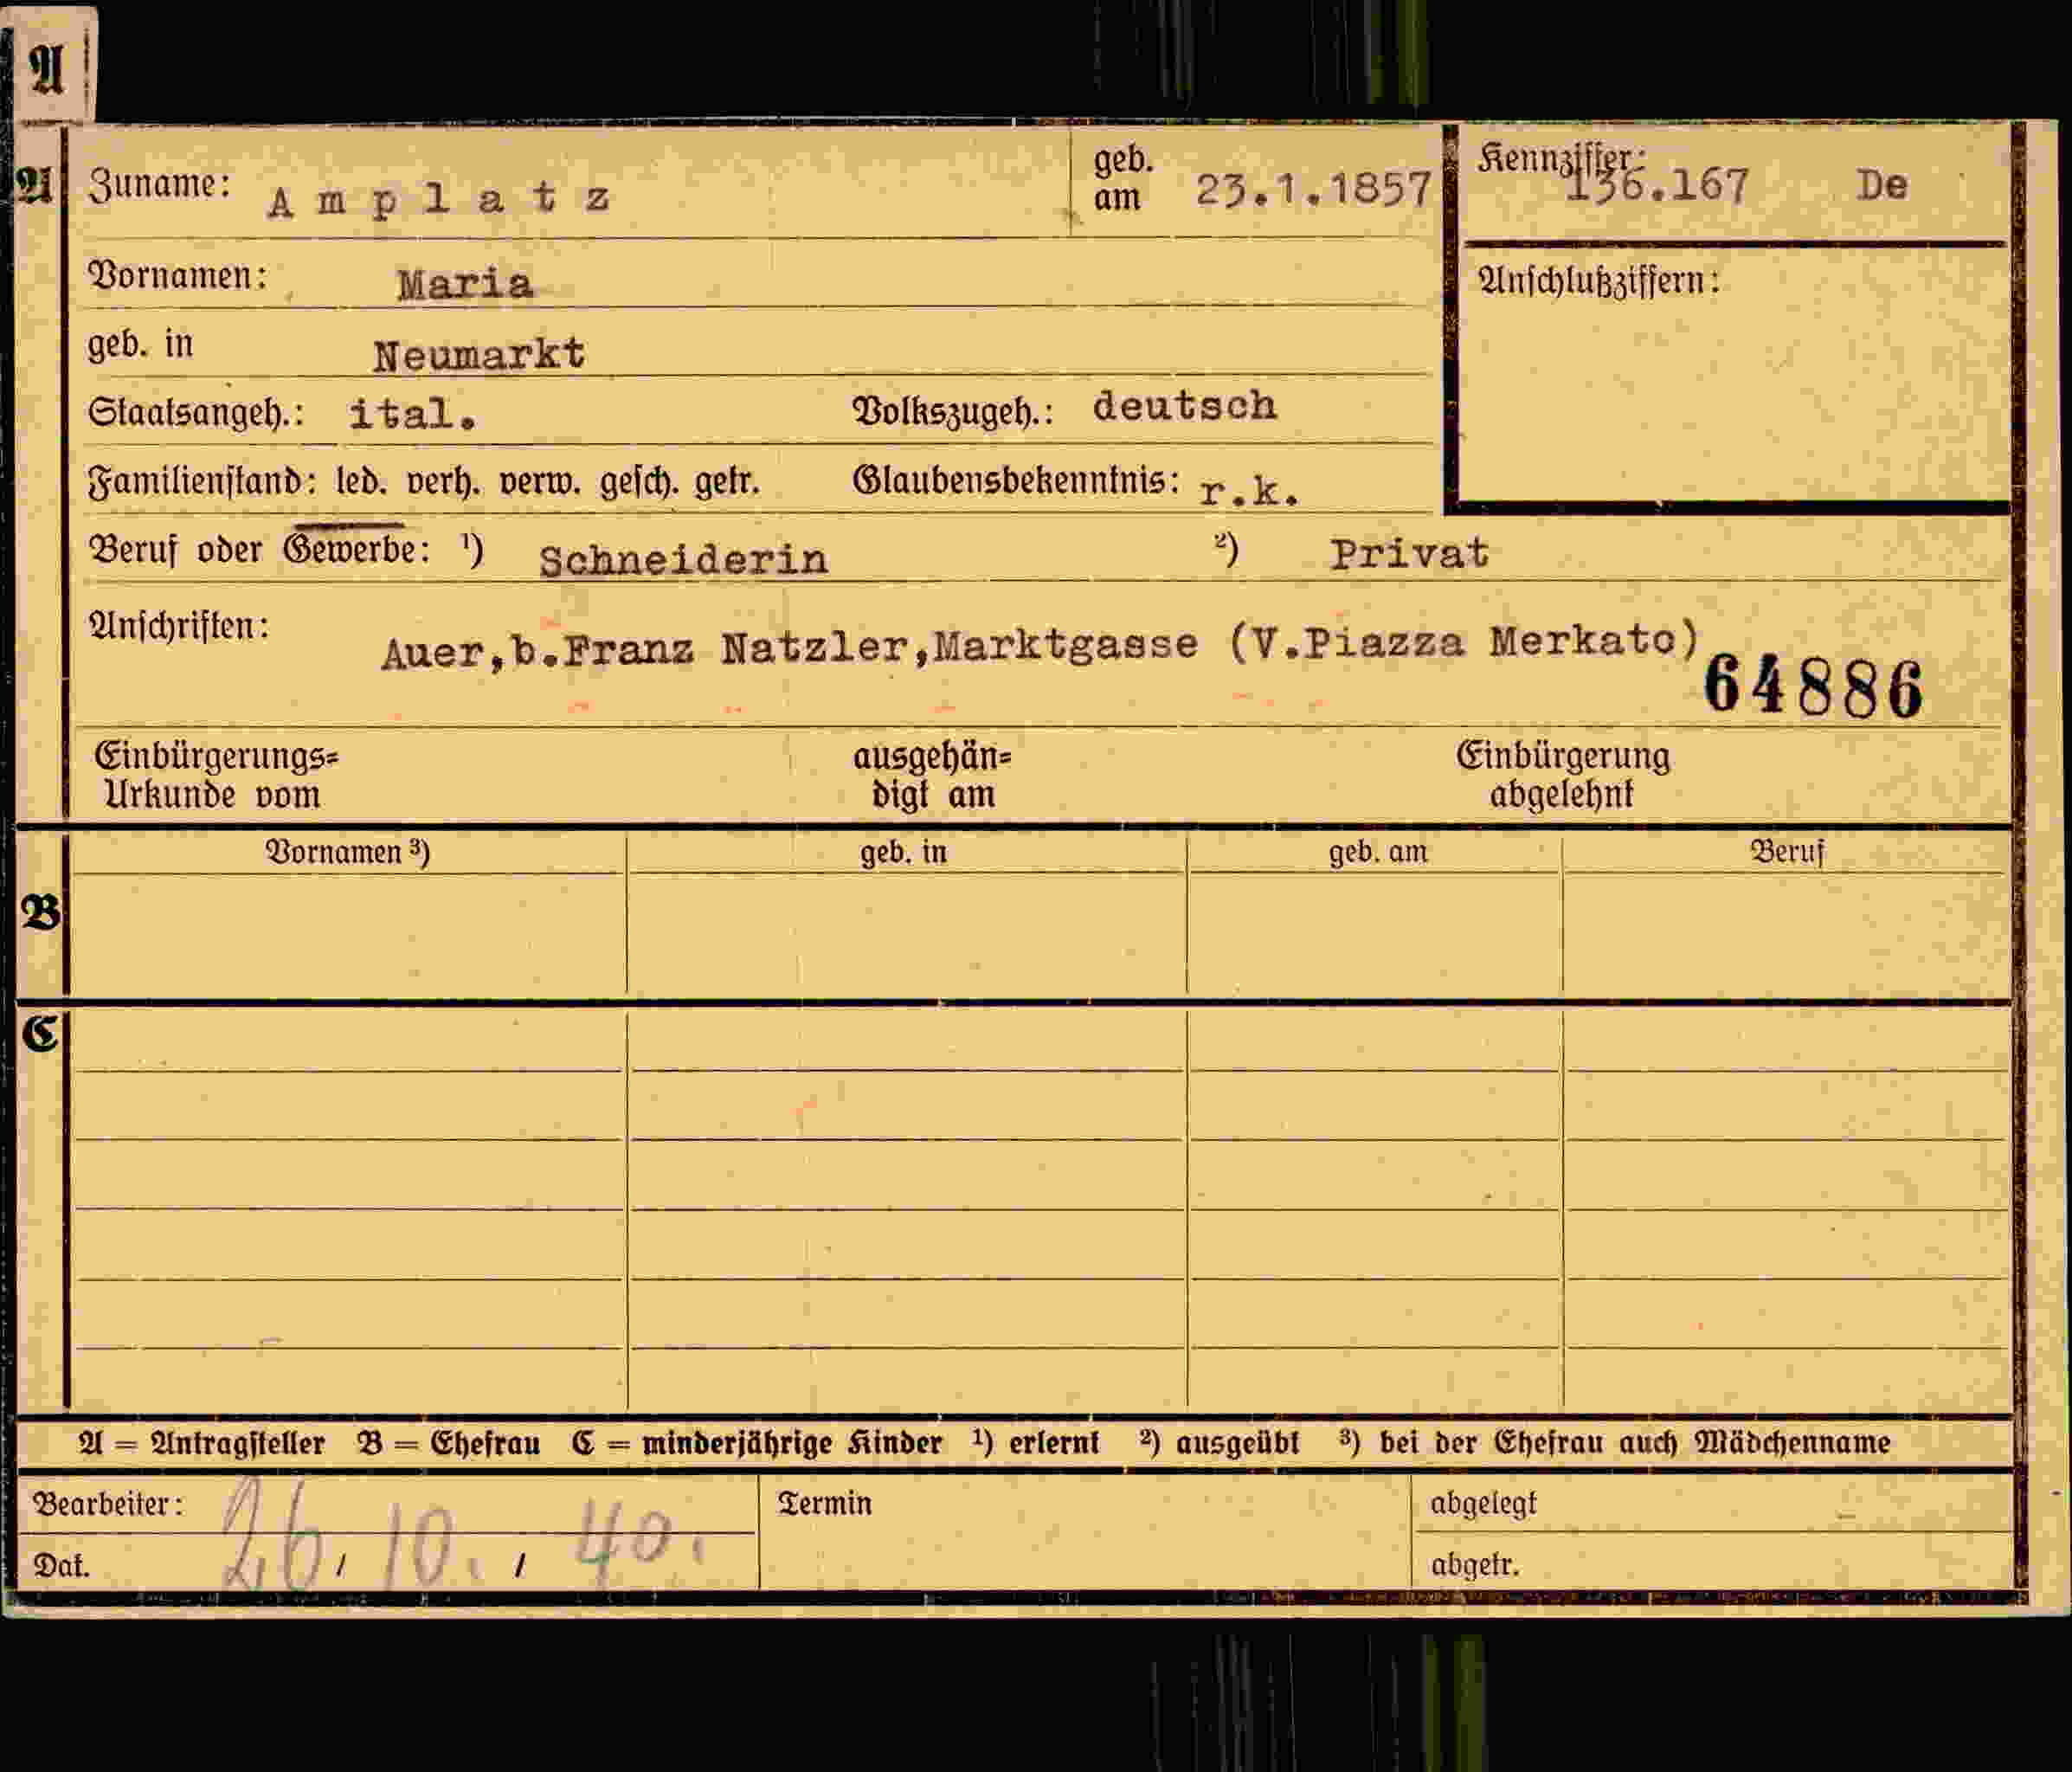 A
A Zuname: Amplatz geb. am 23.1.1857 Kennziffer: 136.167 De
Vornamen: Maria Anschlußziffern:
geb. in Neumarkt
Staatsangeh.: ital. Volkszugeh.: deutsch
Familienstand: led. verh. verw. gesch. getr. Glaubensbekenntnis: r.k.
Beruf oder Gewerbe: ¹) Schneiderin ²) Privat
Anschriften: Auer,b.Franz Natzler,Marktgasse (V.Piazza Merkato)
64886
Einbürgerungs= ausgehän= Einbürgerung
Urkunde vom digt am abgelehnt
Vornamen ³) geb. in geb. am Beruf
B
C
A = Antragsteller B = Ehefrau C = minderjährige Kinder ¹) erlernt ²) ausgeübt ³) bei der Ehefrau auch Mädchenname
Bearbeiter: Termin abgelegt
Dat. 26 / 10. / 40. abgetr.